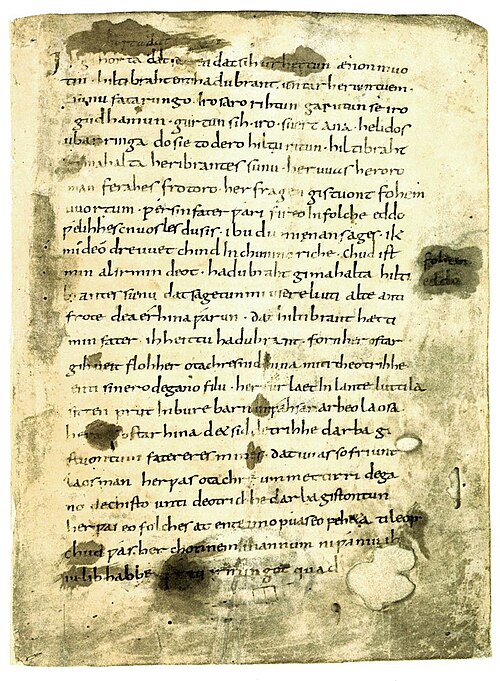 Ik gihorta đat seggen đat sih urhettun ænon muo
tin · hiltibraht enti hađubrant · untar heriun tuem ·
sunu fatarungo · iro saro rihtun garutun se iro
guđhamun · gurtun sih · iro · suert ana · helidos
ubar ringa do sie to dero hiltu ritun · hiltibraht
gimahalta heribrantes sunu · her uuas heroro
man ferahes frotoro · her fragen gistuont fohem
uuortum · ƿer sin fater ƿari fireo In folche eddo
ƿelihhes cnuosles du sis · ibu du mi enan sages · ik
mideo dre uuet chind In chunincriche · chud ist
min al irmin deot · hadubraht gimahalta hilti
brantes sunu dat sagetun mi usere liuti alte anti
frote dea erhina ƿarun · dat hiltibrant hætti
min fater · ih heittu hadubrant · forn her ostar
gihueit floh her otachres nid hina miti theotrihhe
enti sinero degano filu · her furlaet In lante luttila
sitten prut In bure barn unƿahsan arbeo laosa
ostar hina det sid detrihhe darba gi
stuontum fatereres mines · dat uuas so friunt
laos man her ƿas otachre ummettirri dega
no dechisto unti deotrichhe darba gistontun
her ƿas eo folches at ente imo ƿuas eo peheta ti leop
chud ƿas her chonnem mannum ni ƿaniu ih
iu lib habbe irmingot quad